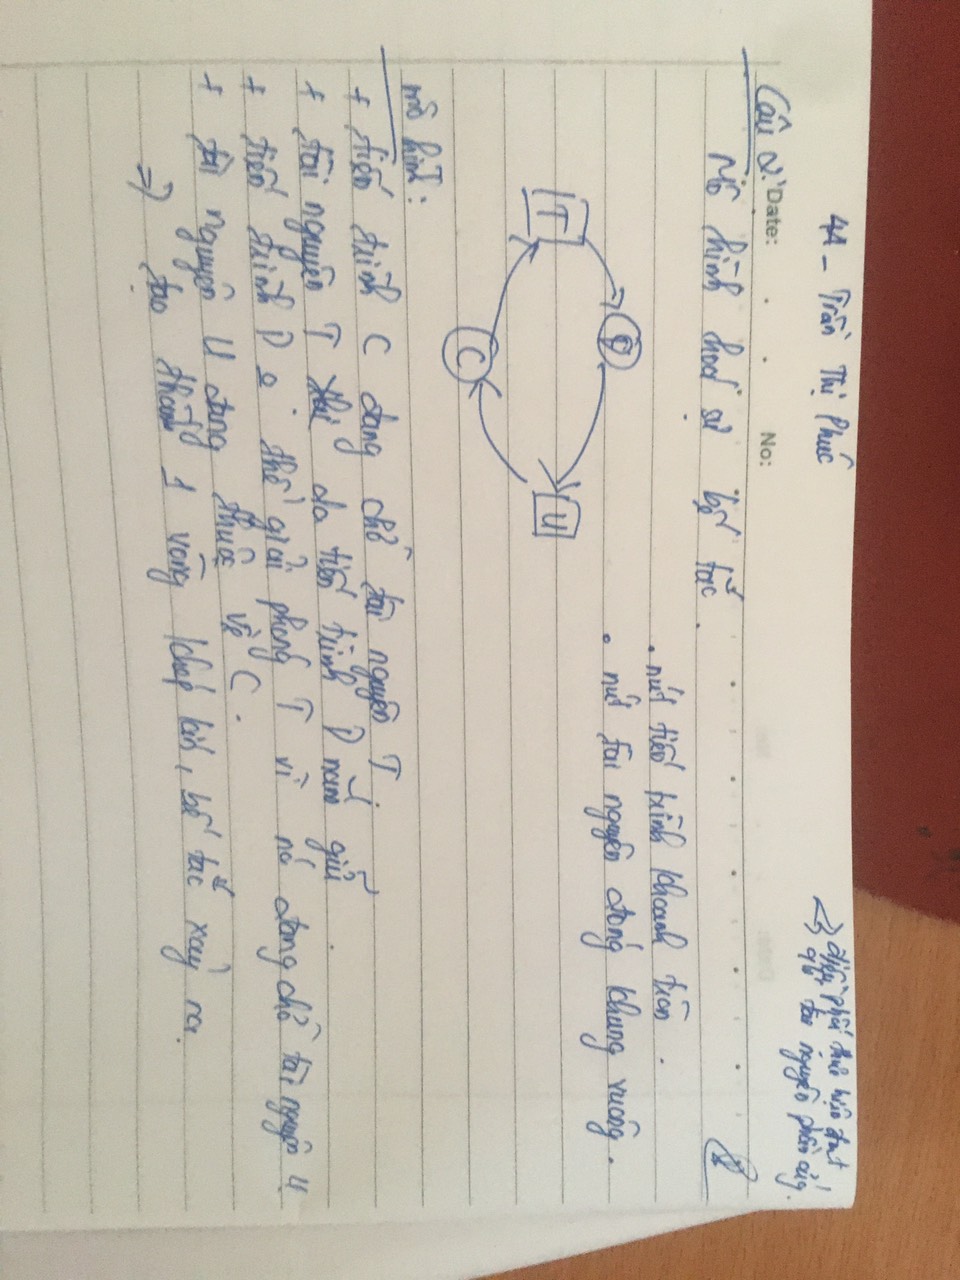 41 - Trần Thị Phúc
điều phối thực hiện
tài nguyên phần cứng.
Câu 2: Date: No:
Mô hình hoá sự bế tắc.
. nút tiến trình khoanh tròn.
. nút tài nguyên đóng khung vuông.
D
T U
C
mô hình:
+ tiến trình C đang chờ tài nguyên T.
+ tài nguyên T do tiến trình D nắm giữ.
+ tiến trình D o thể giải phóng T vì nó đang chờ tài nguyên U.
+ tài nguyên U đang thuộc về C.
=> tạo thành 1 vòng khép kín, bế tắc xảy ra.